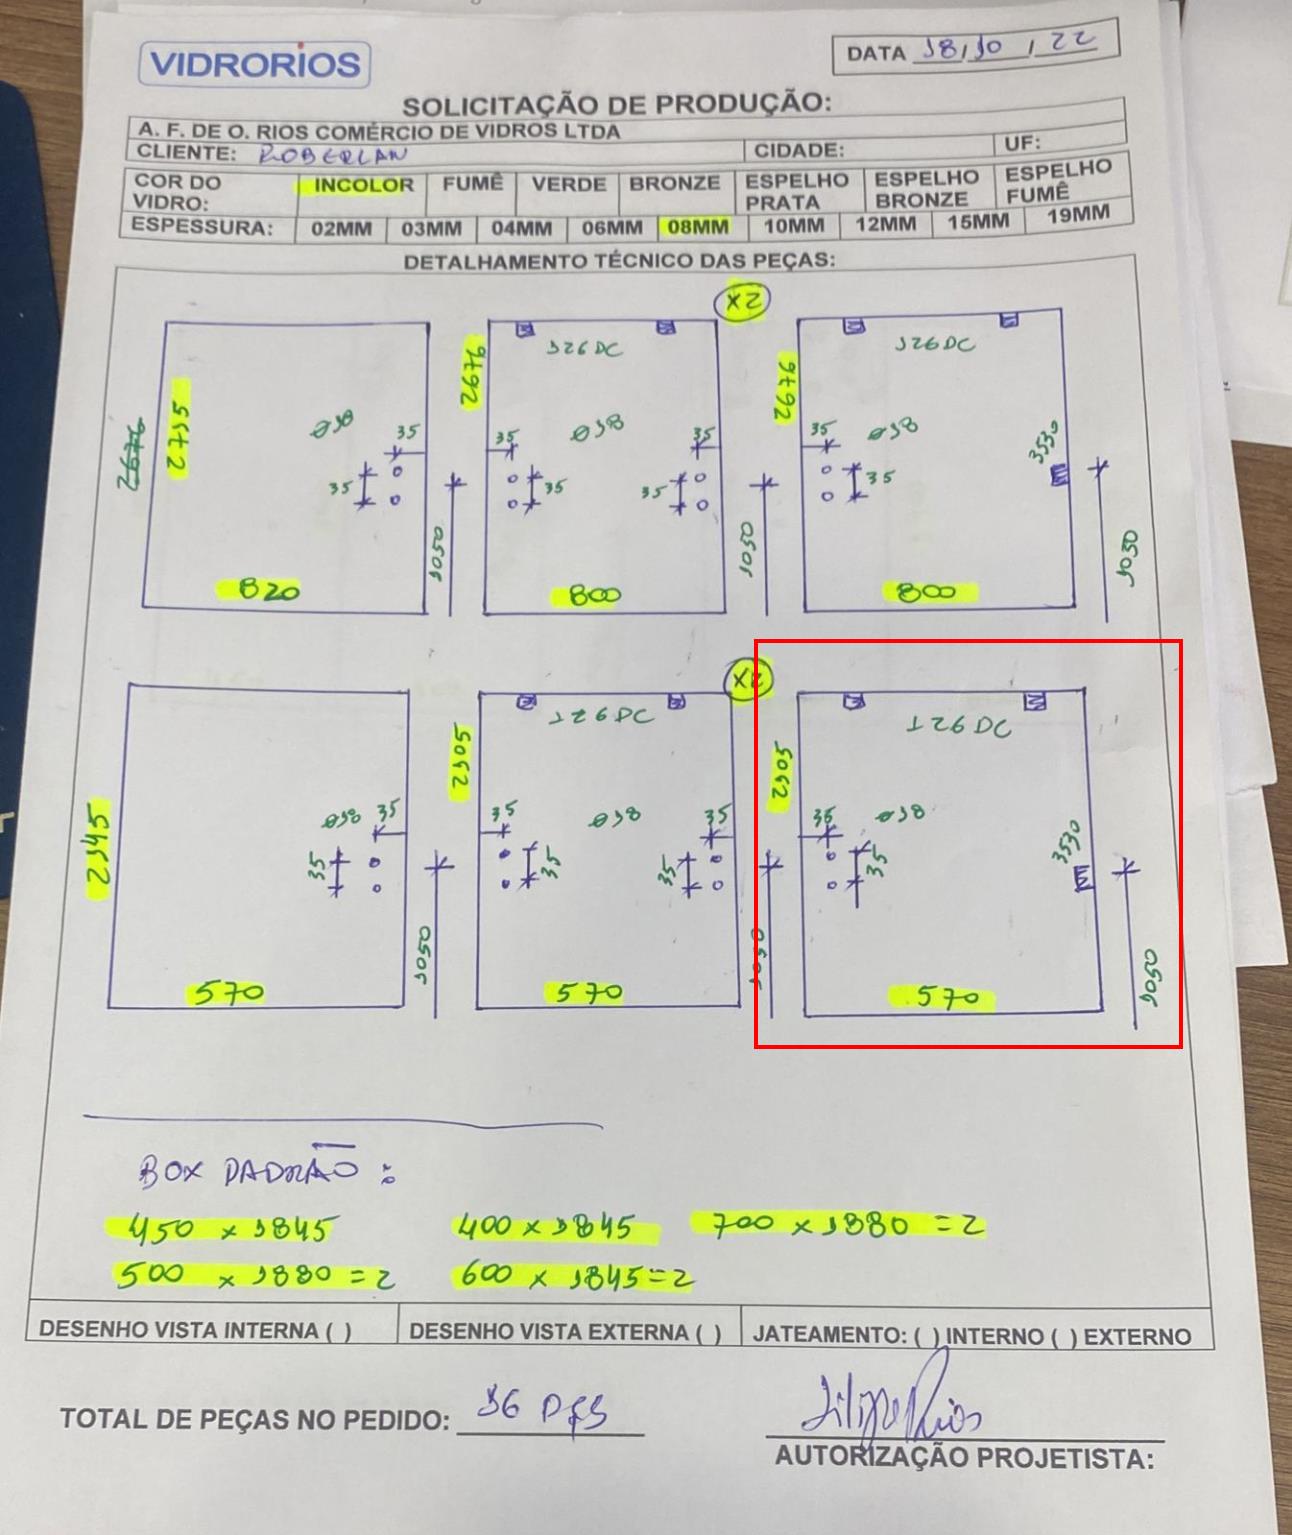 VIDRORIOS
DATA 18/10/22
SOLICITAÇÃO DE PRODUÇÃO:
A. F. DE O. RIOS COMÉRCIO DE VIDROS LTDA
CLIENTE: ROBERLAN CIDADE: UF:
COR DO VIDRO: INCOLOR FUMÊ VERDE BRONZE ESPELHO PRATA ESPELHO BRONZE ESPELHO FUMÊ
ESPESSURA: 02MM 03MM 04MM 06MM 08MM 10MM 12MM 15MM 19MM
DETALHAMENTO TÉCNICO DAS PEÇAS:
2676
2715
Ø18
35
35
1050
820
2676
126 DC
35
Ø18
35
35
35
1050
800
2X
2676
126 DC
35
Ø18
35
3530
1050
800
2145
Ø18
35
35
1050
570
2105
126 DC
35
Ø18
35
35
35
1050
570
2X
2105
126 DC
35
Ø18
35
3530
1050
570
BOX PADRÃO:
450 x 1845 400 x 1845 700 x 1880 = 2
500 x 1880 = 2 600 x 1845 = 2
DESENHO VISTA INTERNA ( ) DESENHO VISTA EXTERNA ( ) JATEAMENTO: ( ) INTERNO ( ) EXTERNO
TOTAL DE PEÇAS NO PEDIDO: 16 PÇS
Filipe Rios
AUTORIZAÇÃO PROJETISTA: